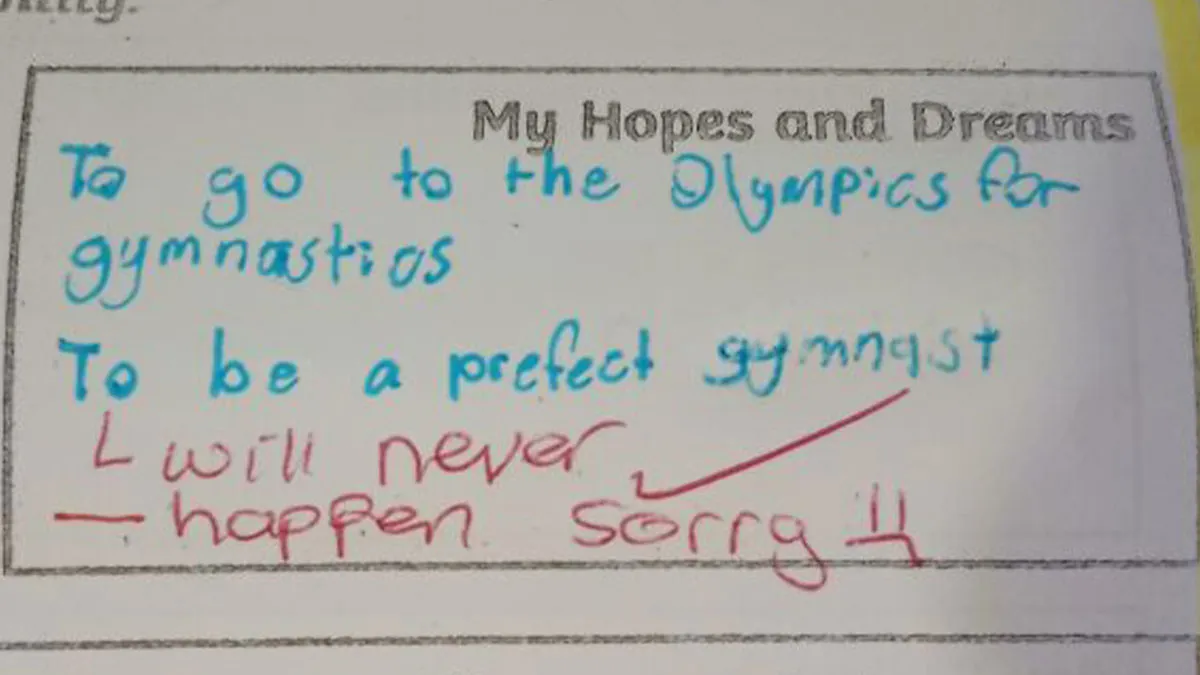 My Hopes and Dreams
To go to the Olympics for
gymnastics
To be a prefect gymnast
will never
happen sorry